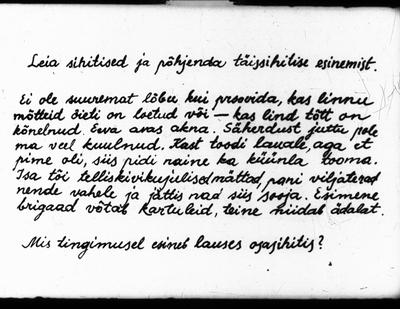 Leia sihitised ja põhjenda täissihitise esinemist.
Ei ole suuremat lõbu kui proovida, kas linnu
mõtteid õieti on loetud või — kas lind tõtt on
kõnelnud. Eeva avas akna. Säherdust juttu pole
ma veel kuulnud. Kast toodi lauale, aga et
pime oli, siis pidi naine ka küünla tooma.
Isa tõi telliskivikujulised mättad, pani viljaterad
nende vahele ja jättis nad siis sooja. Esimene
brigaad võtab kartuleid, teine niidab ädalat.
Mis tingimusel esineb lauses osasihitis?